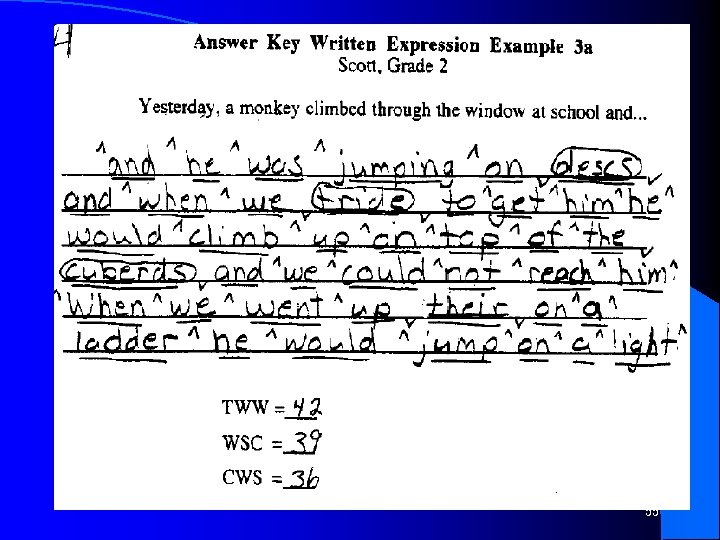 4
Answer Key Written Expression Example 3a
Scott, Grade 2
Yesterday, a monkey climbed through the window at school and...
^and ^ he ^ was ^ jumping ^ on descs
and ^ when ^ we tride to ^ get ^ him ^ he ^
would ^ climb ^ up ^ on ^ top ^ of ^ the
cuberds and ^ we ^ could ^ not ^ reach ^ him.^
^When ^ we ^ went ^ up their on ^ a ^
ladder ^ he ^ would ^ jump ^ on ^ a ^ light.^
TWW = 42
WSC = 39
CWS = 36